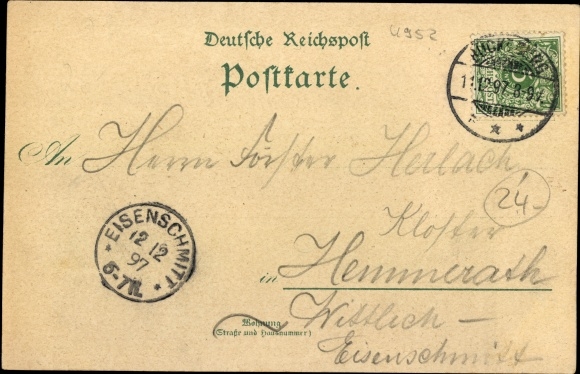 4952
Deutsche Reichspost
Postkarte.
11.12.97. 8-9
An Herrn Förster Herlach
24-
Kloster
in Hemmerath
EISENSCHMITT
12 12
97
6-7
Wohnung
(Straße und Hausnummer)
Wittlich –
Eisenschmitt